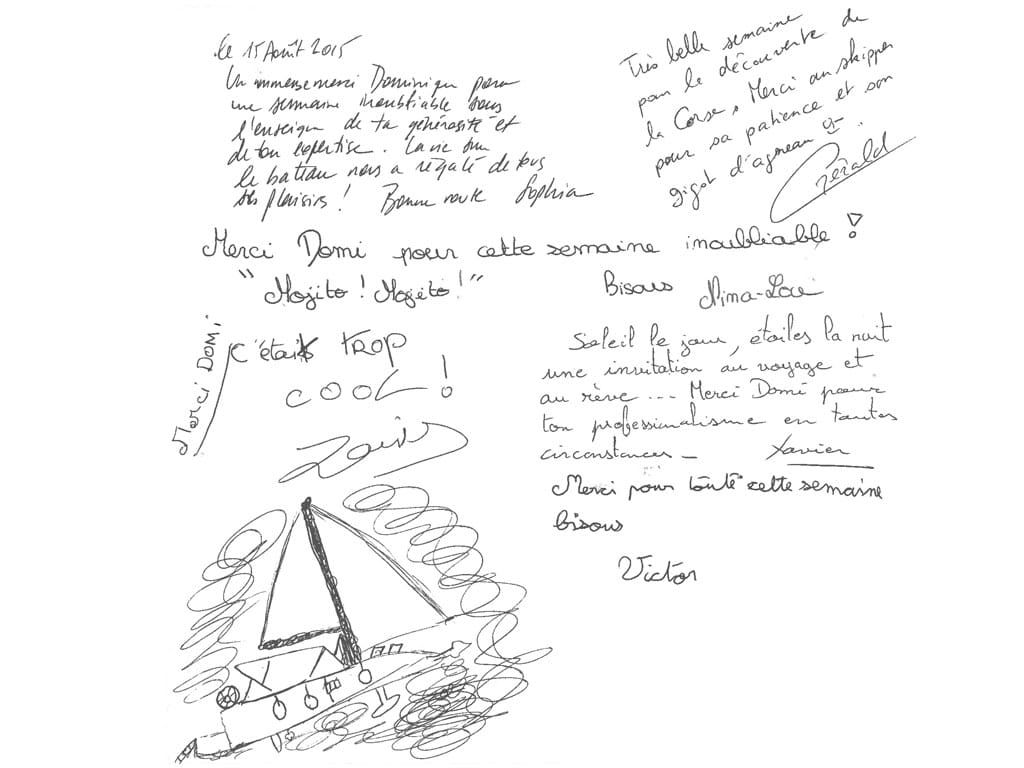 Le 15 Août 2015
Un immense merci Dominique pour
une semaine inoubliable sous
l'enseigne de ta générosité et
de ton expertise. La vie sur
le bateau nous a régalé de tous
ses plaisirs ! Bonne route Sophia
Très belle semaine
pour la découverte de
la Corse, Merci au skipper
pour sa patience et son
gigot d'agneau
Gérald
Merci Domi pour cette semaine inoubliable !
"Mojito ! Mojito !"
Bisous Nina-Lou
Merci DOMI
C'était trop
COOL !
Soleil le jour, étoiles la nuit
une invitation au voyage et
au rêve ... Merci Domi pour
ton professionalisme en toutes
circonstances _ Xavier
Merci pour toute cette semaine
bisous
Victor